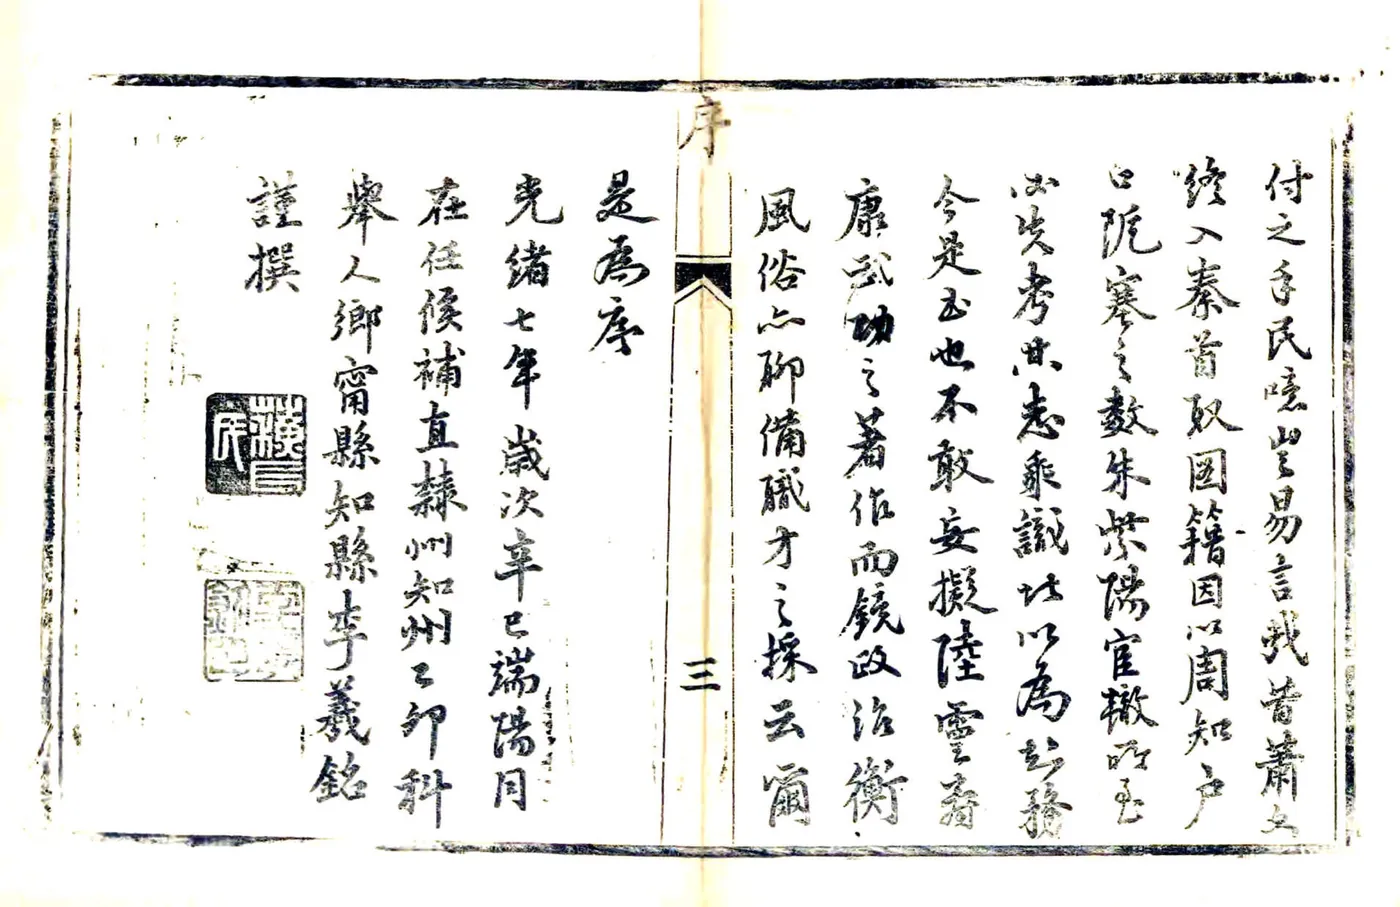 付之手民噫豈易言哉昔蕭文
終入秦首取圖籍因以周知戶
口阨塞之數朱紫陽官轍所至
必先考其志乘識此以為知務
今是書也不敢妄擬陸靈壽
康武功之著作而鏡政治衡
風俗亦聊備職方之採云爾
序
三
是為序
光緒七年歲次辛巳端陽月
在任候補直隸州知州乙卯科
舉人鄉甯縣知縣李羲銘
謹撰